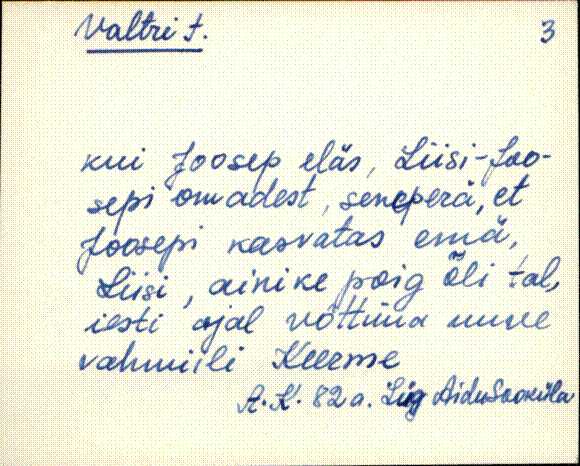 Valtri t.
3
kui Joosep eläs, Liisi-Joo-
sepi omadest, seneperä, et
Joosepi kasvatas emä,
Liisi, ainike poig õli tal,
iesti ajal võttina uuve
vahmiili Keerme
A. K. 82 a. Lüg Aidu Sooküla